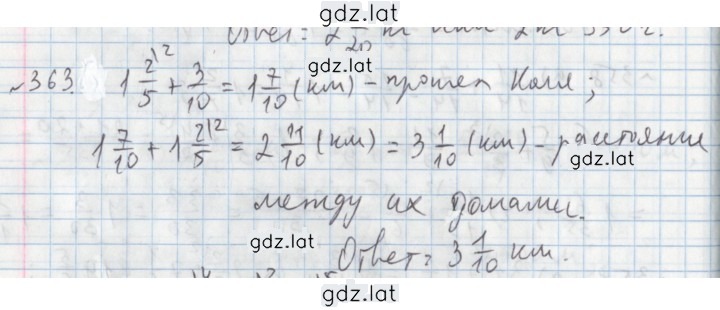 gdz.lat
Ответ: 2 1/20 т или 2 т
№363. 1 2/5 + 3/10 = 1 7/10 (км) - прошел Коля;
gdz.lat
1 7/10 + 1 2/5 = 2 11/10 (км) = 3 1/10 (км) - расстояние
gdz.lat
между их домами.
gdz.lat
Ответ: 3 1/10 км.
gdz.lat